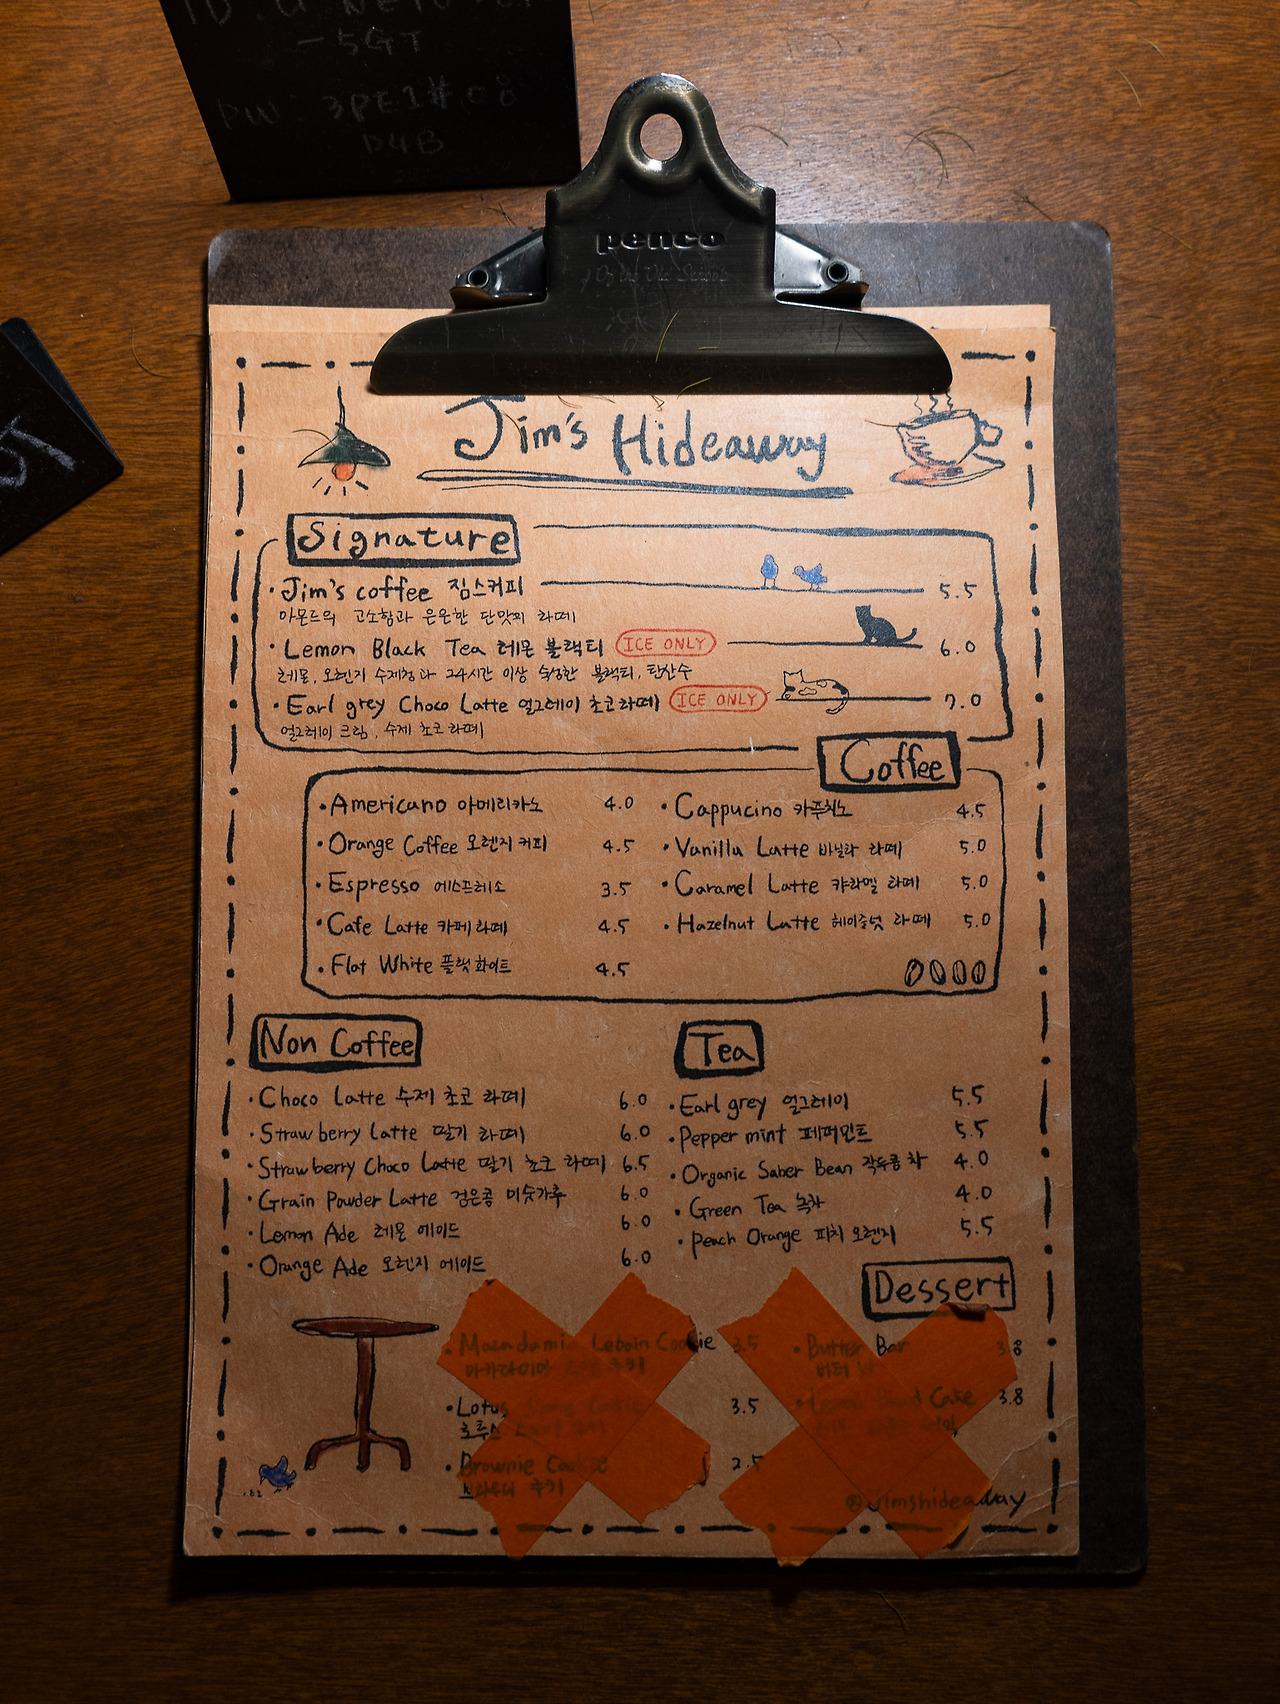 - 5GT
PW : 3PE1#08
D4B
penco
Jim's Hideaway
Signature
· Jim's coffee 짐스커피 5.5
아몬드의 고소함과 은은한 단맛의 라떼
· Lemon Black Tea 레몬 블랙티 ICE ONLY 6.0
레몬, 오렌지 수제청과 24시간 이상 숙성한 블랙티, 탄산수
· Earl grey Choco Latte 얼그레이 초코라떼 ICE ONLY 7.0
얼그레이 크림, 수제 초코라떼
Coffee
· Americano 아메리카노 4.0
· Orange Coffee 오렌지 커피 4.5
· Espresso 에스프레소 3.5
· Cafe Latte 카페 라떼 4.5
· Flat White 플랫 화이트 4.5
· Cappucino 카푸치노 4.5
· Vanilla Latte 바닐라 라떼 5.0
· Caramel Latte 캬라멜 라떼 5.0
· Hazelnut Latte 헤이즐넛 라떼 5.0
Non Coffee
· Choco Latte 수제 초코 라떼 6.0
· Strawberry Latte 딸기 라떼 6.0
· Strawberry Choco Latte 딸기 초코 라떼 6.5
· Grain Powder Latte 검은콩 미숫가루 6.0
· Lemon Ade 레몬 에이드 6.0
· Orange Ade 오렌지 에이드 6.0
Tea
· Earl grey 얼그레이 5.5
· Pepper mint 페퍼민트 5.5
· Organic Saber Bean 작두콩 차 4.0
· Green Tea 녹차 4.0
· Peach Orange 피치 오렌지 5.5
Dessert
· Macadamia Lebain Cookie 3.5
마카다미아 쿠키
· Lotus 3.5
로투스 쿠키
· Brownie Cookie 2.5
브라우니 쿠키
· Butter Bar 3.8
버터 바
Cake 3.8
@jimshideaway